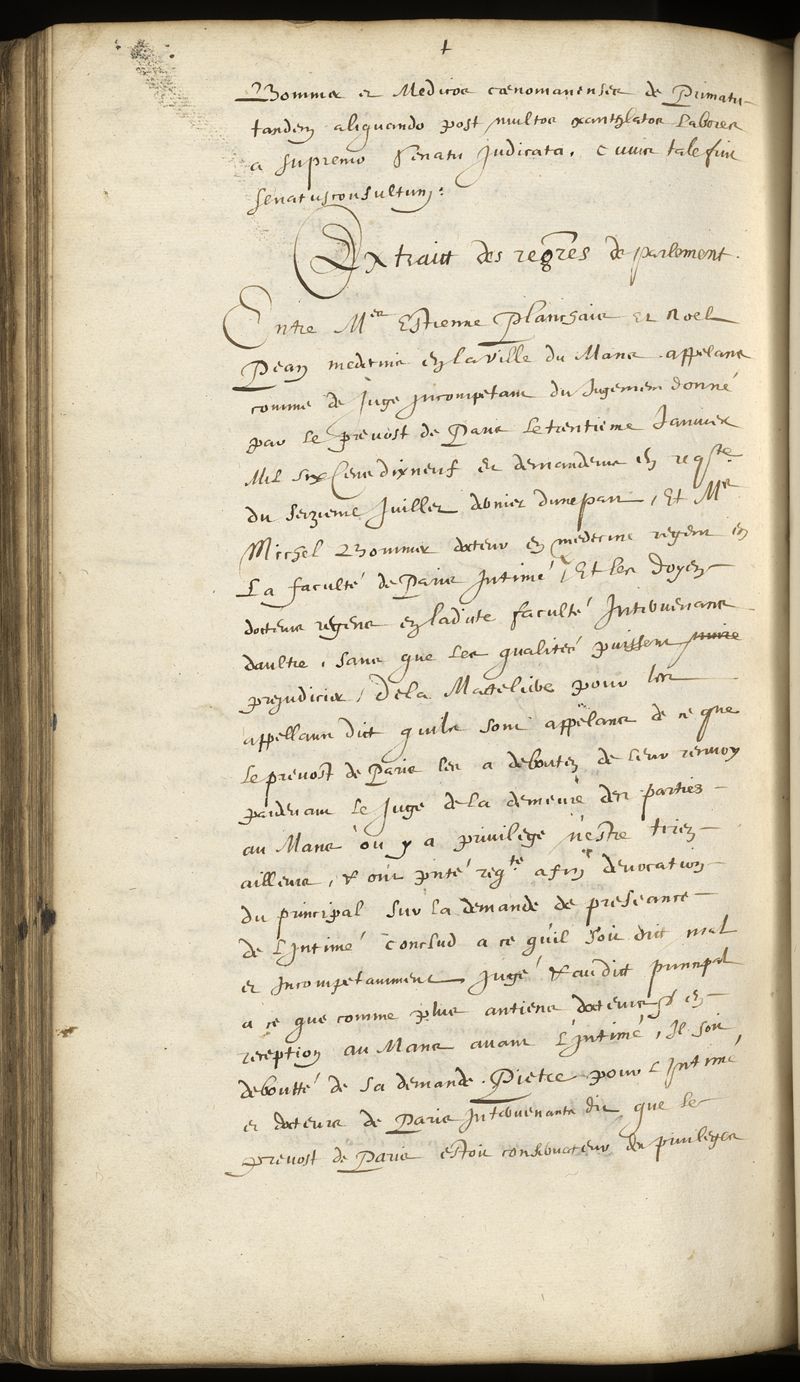 +
Bommer et Medicos cœnomanenses de Primatu
tandem aliquando post multos exantylatos Labores
a supremo Senatu Judicata. Cuius tale fuit
senatusconsultum:
Extraict des regres de parlement.
Entre Mes Estienne Planchais Et Noel
Pean medecins en la ville du Mans appelans
comme de Juge Incompetant du Jugement donné
par Le prevost de Paris Le trentieme Janvier
Mil six Cens dix neuf et demandeurs en reqste
du seizieme Juillet dernier dune part, Et Me
Michel Bommer docteur en medecine regent en
La faculté de Paris Intimé, Et les doyen
docteurs regens en ladite faculté Intervenans
daultre, sans que les qualités puissent nuire
prejudicier, De la Matteliere pour les
appellans dict quils sont appelans de ce que
Le prevost de Paris les a deboutez de leur renvoy
pardevant le Juge de la demeure des parties
au Mans ou y a privilege nestre tirez
ailleurs, & ont pnté reqte afin devocation
du principal sur la demande de preseance
de L'Intimé Conclud a ce quil soit dict mal
et Incompetamment Jugé & audict principal
a ce que comme plus antiens docteurs et en
reception au Mans avant L'Intimé, Il soit
deboutté de sa demande. Pietre pour L'Intimé
et docteurs de Paris Intervenants dit que le
prevost de Paris estoit conservateur des privileges